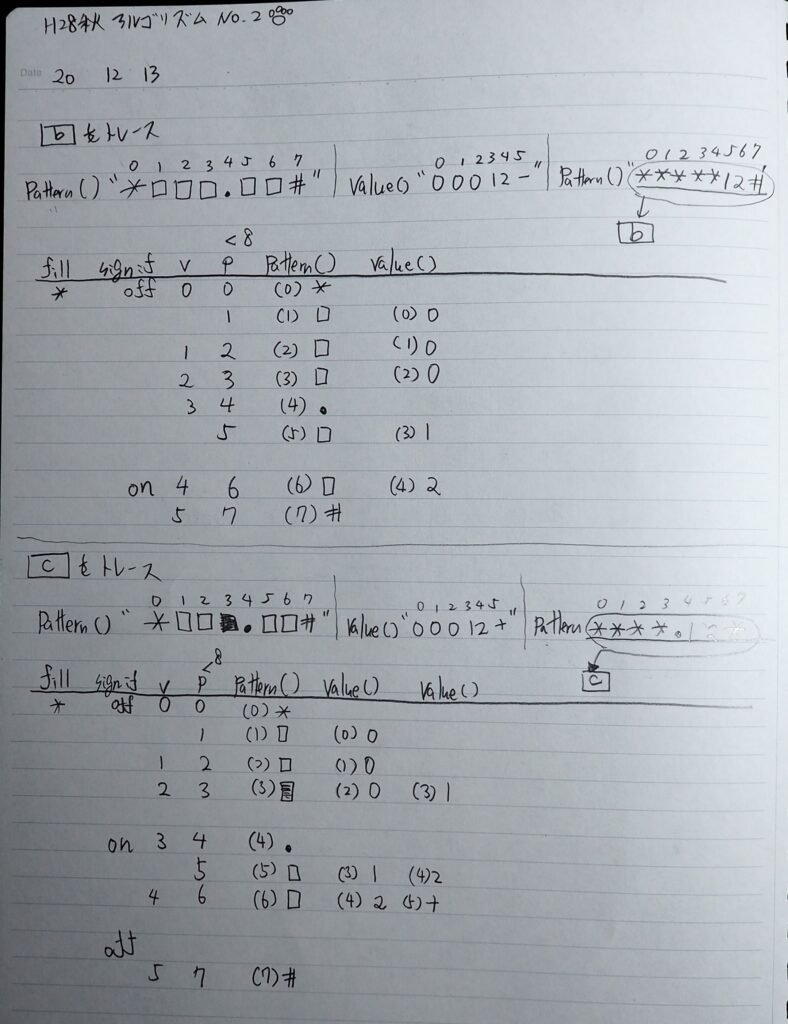 H28秋 アルゴリズム No.2
Date 20 12 13
b をトレース
0 1 2 3 4 5 6 7
Pattern() "*□□□.□□#"
0 1 2 3 4 5
Value() "00012-"
0 1 2 3 4 5 6 7
Pattern() "*****12#"
b
<8
fill signif v p Pattern() Value()
* off 0 0 (0) *
1 (1) □ (0) 0
1 2 (2) □ (1) 0
2 3 (3) □ (2) 0
3 4 (4) .
5 (5) □ (3) 1
on 4 6 (6) □ (4) 2
5 7 (7) #
c をトレース
0 1 2 3 4 5 6 7
Pattern() "*□□■.□□#"
0 1 2 3 4 5
Value() "00012+"
0 1 2 3 4 5 6 7
Pattern ****.12*
c
<8
fill signif v p Pattern() Value() Value()
* off 0 0 (0) *
1 (1) □ (0) 0
1 2 (2) □ (1) 0
2 3 (3) ■ (2) 0 (3) 1
on 3 4 (4) .
5 (5) □ (3) 1 (4) 2
4 6 (6) □ (4) 2 (5) +
off
5 7 (7) #